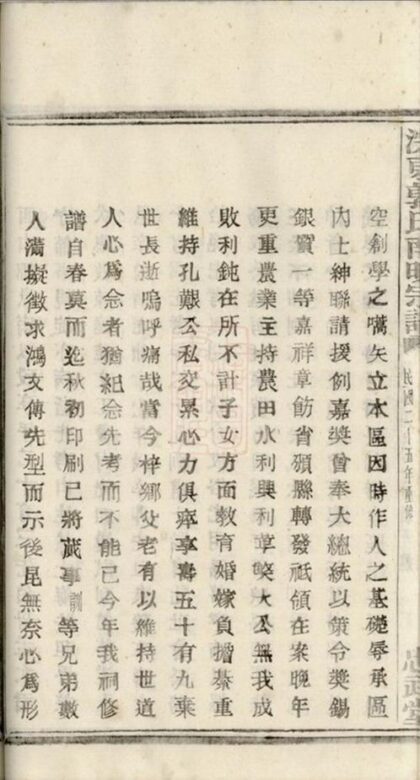 空創學之嚆矢立本區因時作人之基礎辱承區
內士紳聯請援例嘉奬曾奉大總統以策令奬錫
銀質一等嘉祥章飭省頒縣轉發祗領在案晚年
更重農業主持農田水利興利革獘大公無我成
敗利鈍在所不計子女方面敎育婚嫁負擔綦重
維持孔艱公私交累心力俱瘁享壽五十有九棄
世長逝嗚呼痛哉當今梓鄉父老有以維持世道
人心爲念者猶紀念先考而不能已今年我祠修
譜自春莫而迄秋初印刷已將蕆事訓等兄弟數
人滿擬徵求鴻文傳先型而示後昆無奈心爲形
郭氏 宗譜 民國二十五年 忠武堂